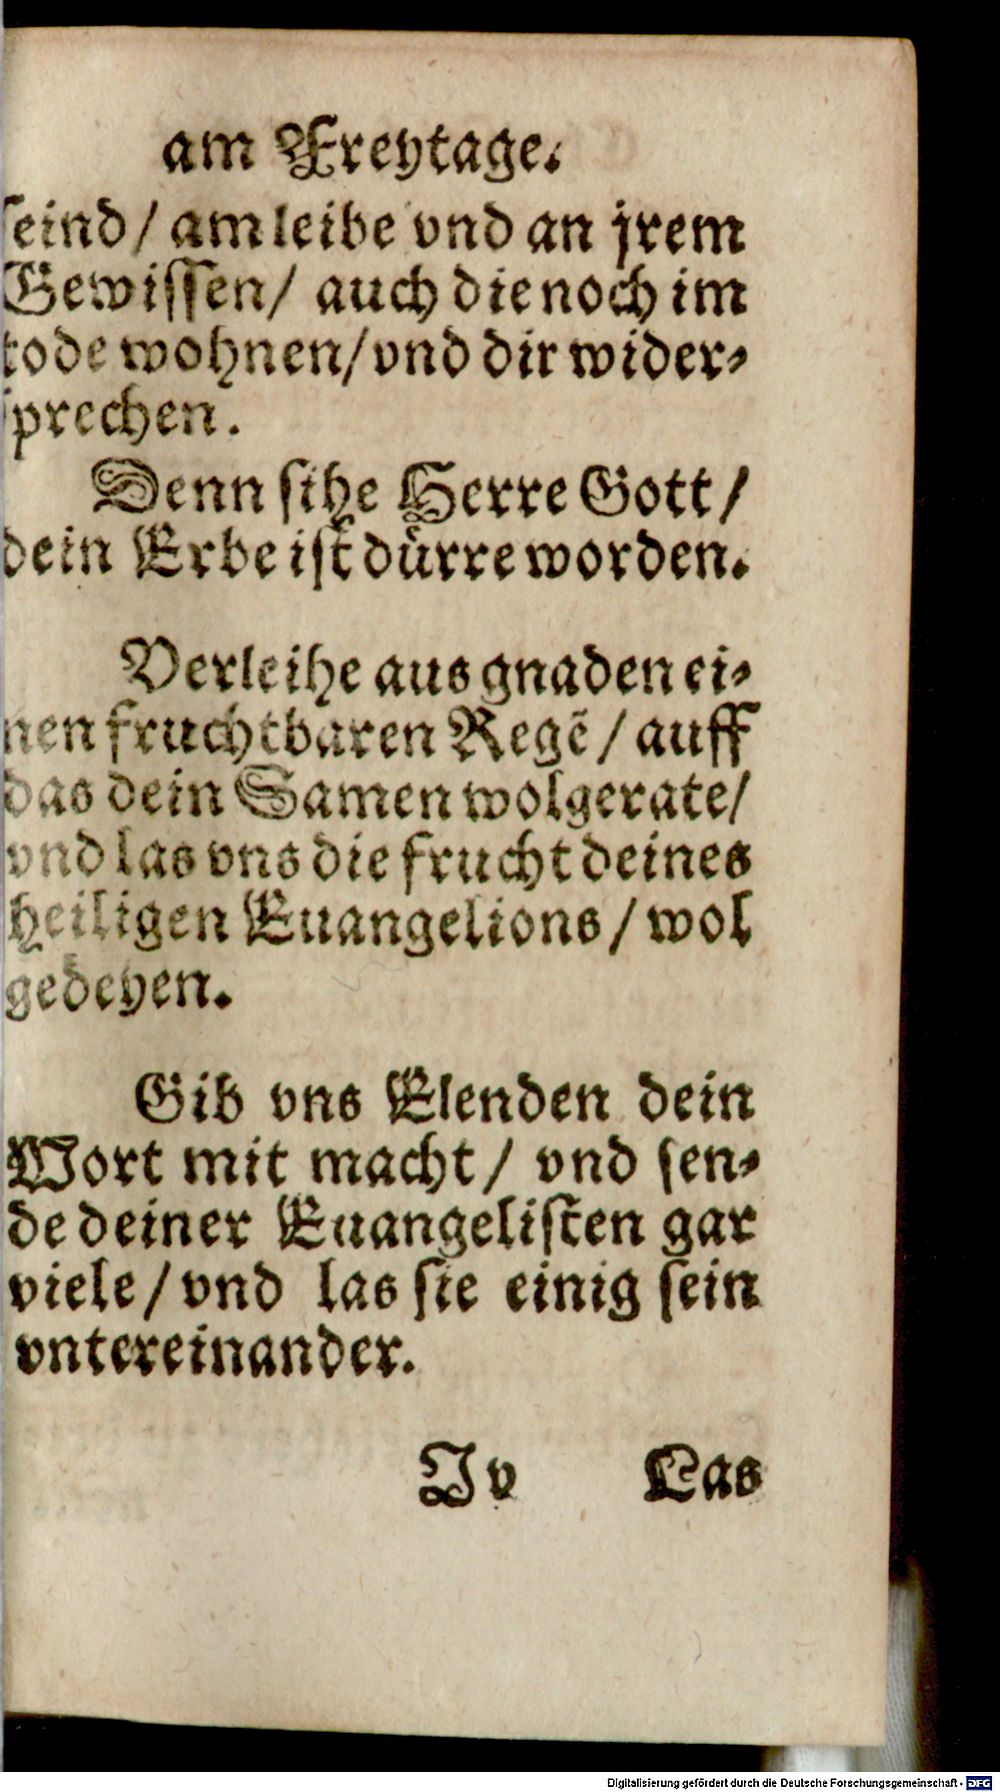 am Freytage.
seind / am leibe vnd an jrem
Gewissen / auch die noch im
tode wohnen / vnd dir wider⸗
sprechen.
Denn sihe Herre Gott /
dein Erbe ist dürre worden.
Verleihe aus gnaden ei⸗
nen fruchtbaren Regẽ / auff
das dein Samen wolgerate /
vnd las vns die frucht deines
heiligen Euangelions / wol
gedeyen.
Gib vns Elenden dein
Wort mit macht / vnd sen⸗
de deiner Euangelisten gar
viele / vnd las sie einig sein
vntereinander.
Jv Las
Digitalisierung gefördert durch die Deutsche Forschungsgemeinschaft - DFG